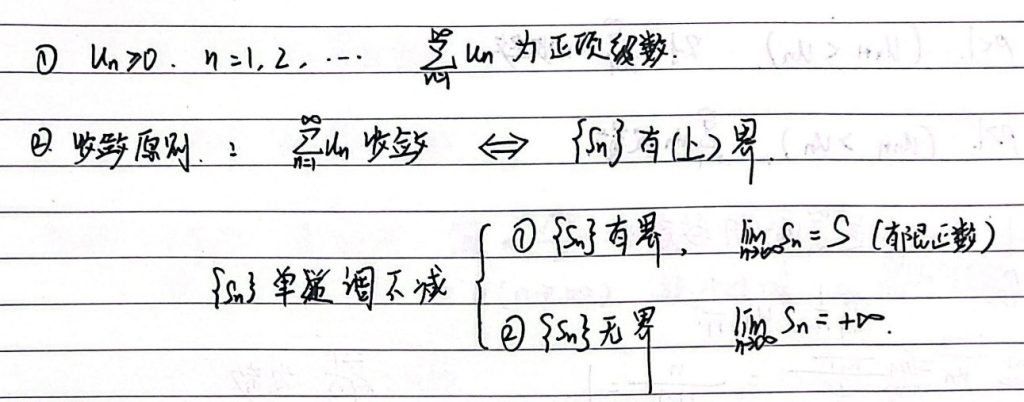 ① uₙ≥0. n=1,2,… ∑_{n=1}^{∞} uₙ 为正项级数.
② 收敛原则.: ∑_{n=1}^{∞} uₙ 收敛 ⇔ {Sₙ}有(上)界.
① {Sₙ}有界, lim_{n→∞} Sₙ = S (有限正数)
{Sₙ}单调不减
② {Sₙ}无界 lim_{n→∞} Sₙ = +∞.